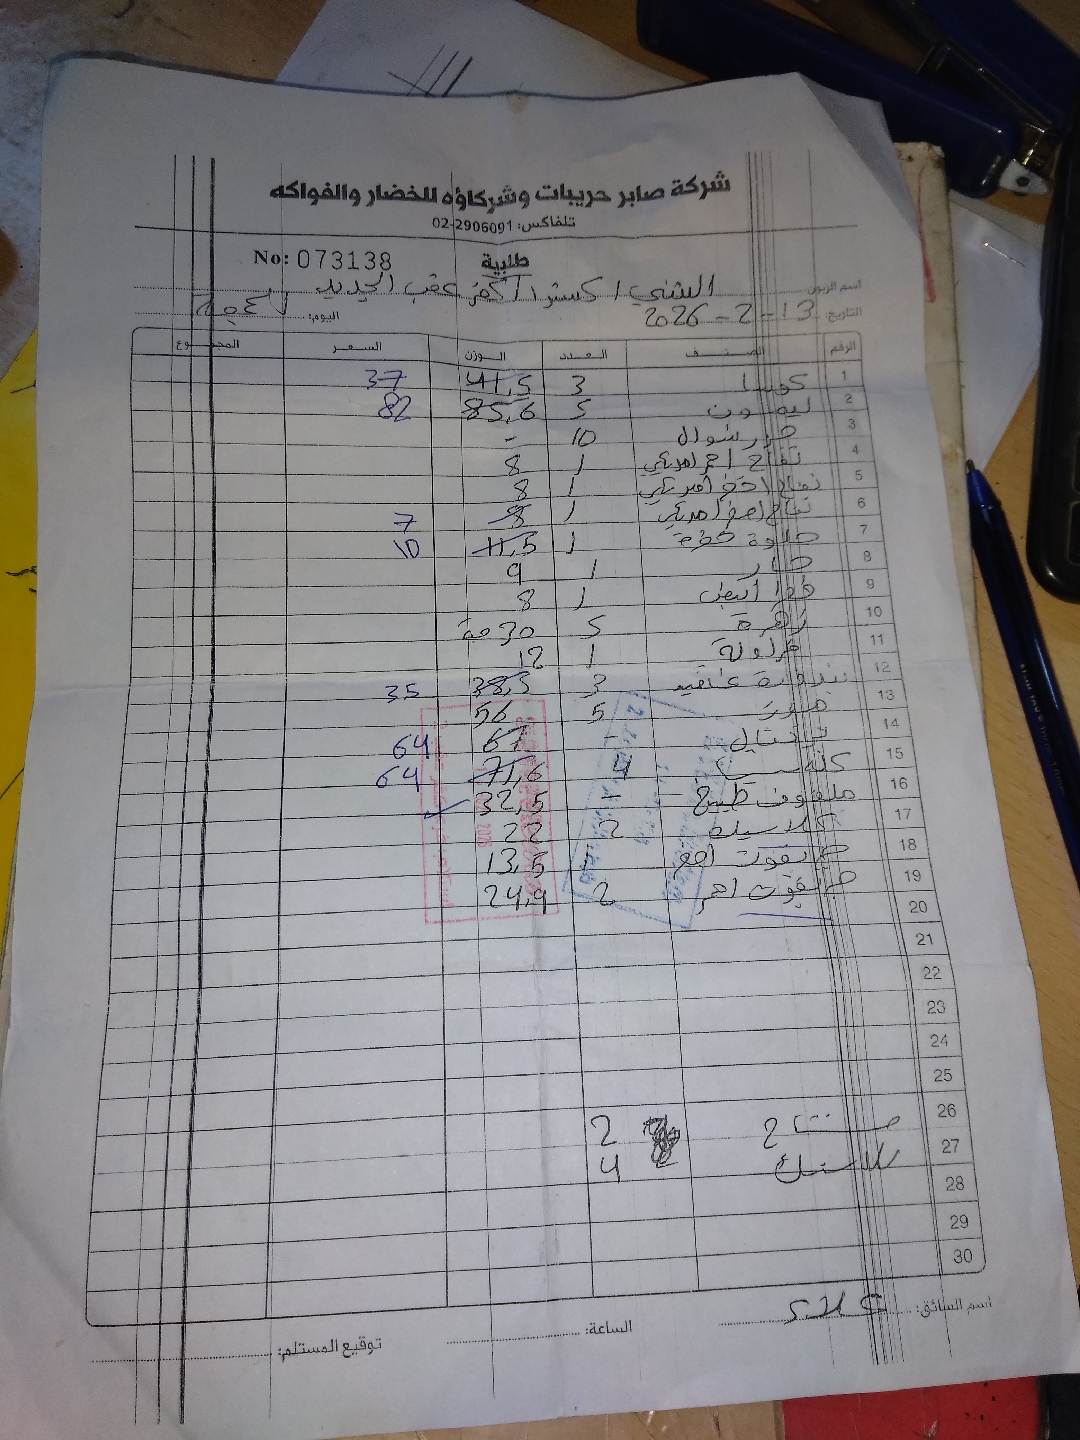 شركة صابر حريبات وشركاؤه للخضار والفواكه
تلفاكس: 02-2906091
No: 073138
طلبية
اسم الزبون: الشني / اكسترا كفر عقب الجديد
التاريخ: 13-2-2026 اليوم: الجمعة
الرقم الصنف العدد الوزن السعر المجموع
1 كوسا 3 41,5 37
2 ليمون 5 85,6 82
3 جزر شوال 10 -
4 تفاح احمر امريكي 1 8
5 تفاح اخضر امريكي 1 8
6 تفاح اصفر امريكي 1 8 7
7 حلوة 1 11,5 10
8 حار 1 9
9 ابيض 1 8
10 زهرة 5 30 حبة
11 فراولة 1 12
12 بندورة عناقيد 3 38,5 35
13 موز 5 56
14 67 64
15 كلمنتينا 4 71,6 64
16 ملفوف طبيخ 32,5
17 2 22
18 جريفوت 13,5
19 جريفوت احمر 2 24,9
20
21
22
23
24
25
26 2
27 بلاستك 4
28
29
30
اسم السائق:
الساعة:
توقيع المستلم: